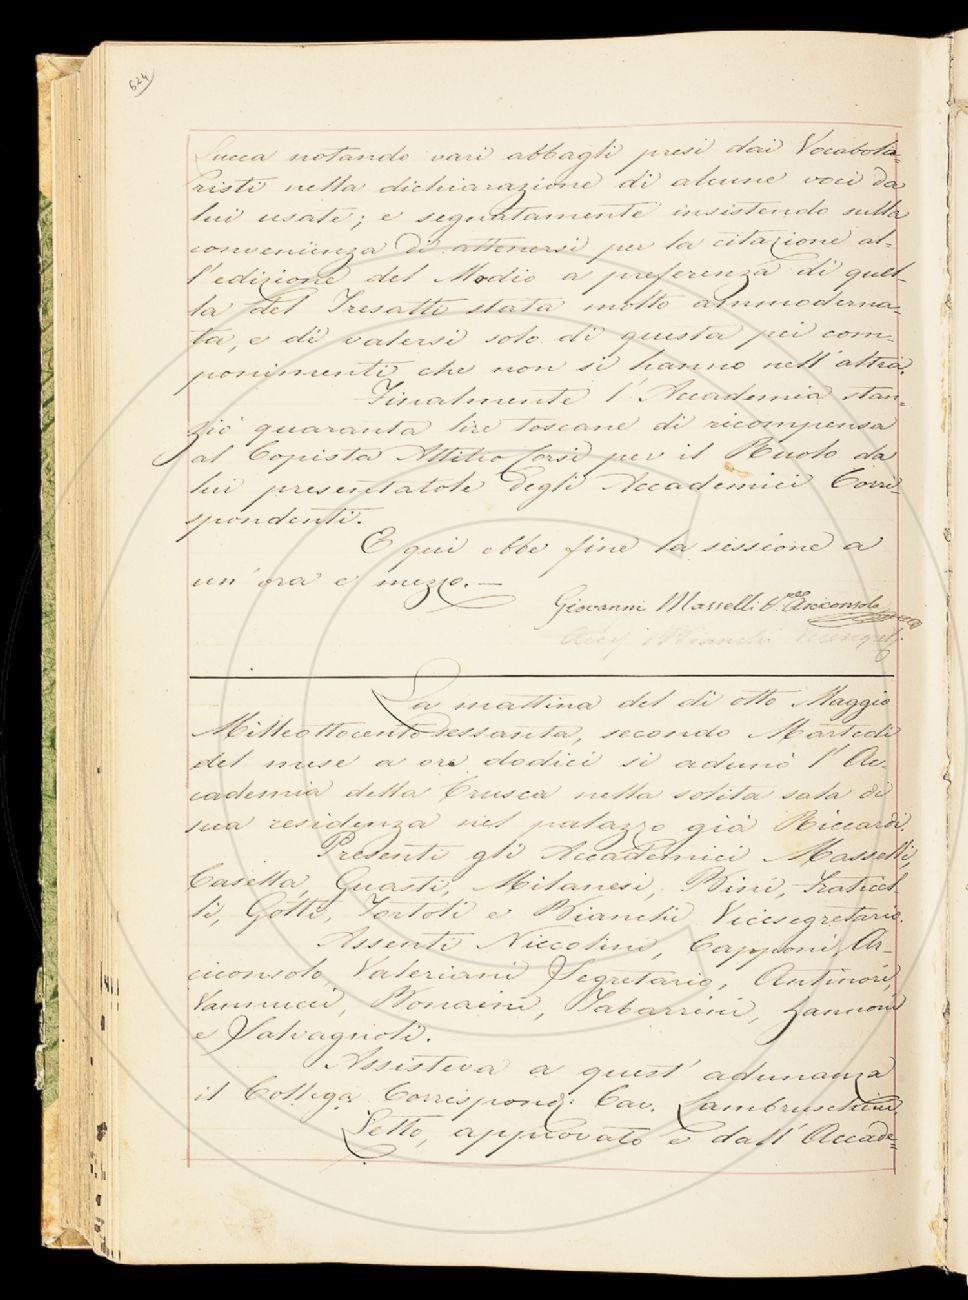 624
Lucca notando vari abbagli presi dai Vocabola=
risti nella dichiarazione di alcune voci da
lui usate; e segnatamente insistendo sulla
convenienza di attenersi per la citazione al-
l'edizione del Modio a preferenza di quel-
la del Tresatti stata molto ammoderna-
ta, e di valersi solo di questa pei com-
ponimenti che non si hanno nell'altra.
Finalmente l'Accademia stan-
ziò quaranta lire toscane di ricompensa
al Copista Attilio Corsi per il Ruolo da
lui presentatole degli Accademici Corri-
spondenti.
E qui ebbe fine la sessione a
un'ora e mezzo. —
Giovanni Masselli V.ce Arciconsolo
Bianchi Vicesegret.
La mattina del dì otto Maggio
Milleottocentosessanta, secondo Martedì
del mese a ore dodici si adunò l'Ac-
cademia della Crusca nella solita sala di
sua residenza nel palazzo già Riccardi.
Presenti gli Accademici Masselli,
Casella, Guasti, Milanesi, Bini, Fraticel-
li, Gotti, Tortoli e Bianchi Vicesegretario.
Assenti Niccolini, Capponi Ar-
ciconsolo, Valeriani Segretario, Antinori,
Vannucci, Bonaini, Tabarrini, Zannoni
e Salvagnoli.
Assisteva a quest'adunanza
il Collega Corrispond: Cav. Lambruschini.
Letto, approvato e dall'Accade=